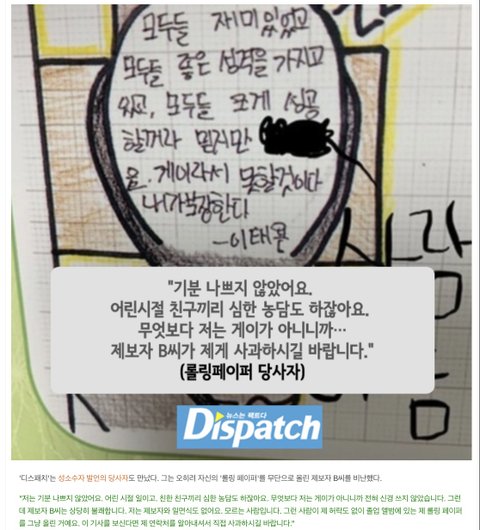 모두들 재미있었고
모두들 좋은 성격을 가지고
있고, 모두들 크게 성공
할꺼라 믿지만
은 게이라서 못할것이다
내가 보장한다
"기분 나쁘지 않았어요.
어린시절 친구끼리 심한 농담도 하잖아요.
무엇보다 저는 게이가 아니니까…
제보자 B씨가 제게 사과하시길 바랍니다."
(롤링페이퍼 당사자)
뉴스는 팩트다
Dispatch
'디스패치'는 성소수자 발언의 당사자도 만났다. 그는 오히려 자신의 '롤링 페이퍼'를 무단으로 올린 제보자 B씨를 비난했다.
"저는 기분 나쁘지 않았어요. 어린 시절 일이고, 친한 친구끼리 심한 농담도 하잖아요. 무엇보다 저는 게이가 아니니까 전혀 신경 쓰지 않았습니다. 그런
데 제보자 B씨는 상당히 불쾌합니다. 저는 제보자와 일면식도 없습니다. 모르는 사람입니다. 그런 사람이 제 허락도 없이 졸업 앨범에 있는 제 롤링 페이퍼
를 그냥 올린 거예요. 이 기사를 보신다면 제 연락처를 알아내셔서 직접 사과하시길 바랍니다."